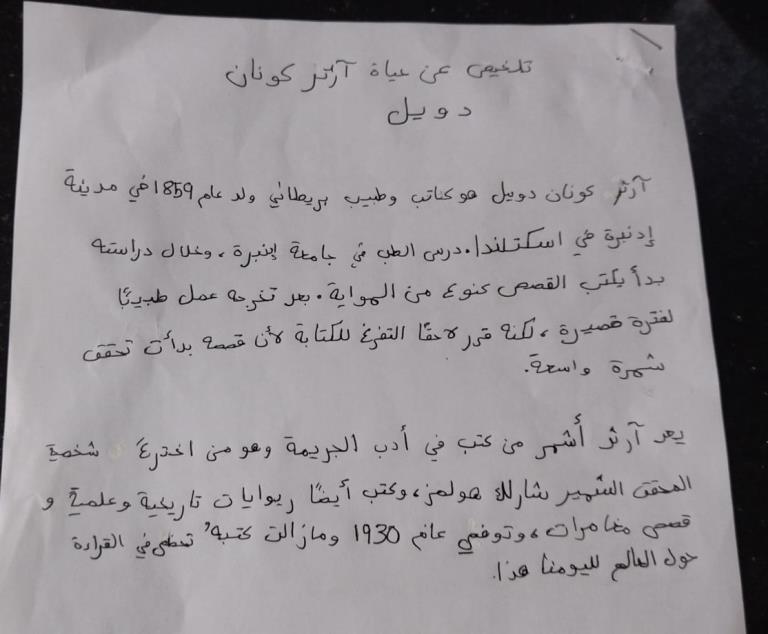 تلخيص عن حياة آرثر كونان
دويل
آرثر كونان دويل هو كاتب وطبيب بريطاني ولد عام 1859 في مدينة
إدنبرة في اسكتلندا. درس الطب في جامعة إنبرة، وخلال دراسته
بدأ يكتب القصص كنوع من الهواية. بعد تخرجه عمل طبيبًا
لفترة قصيرة، لكنه قرر لاحقًا التفرغ للكتابة لأن قصصه بدأت تحقق
شهرة واسعة.
يعد آرثر أشهر من كتب في أدب الجريمة وهو من اخترع شخصية
المحقق الشهير شارلك هولمز، وكتب أيضًا ريوايات تاريخية وعلمية و
قصص مغامرات، وتوفي عام 1930 ومازالت كتبه تحظى في القراءة
حول العالم لليومنا هذا.